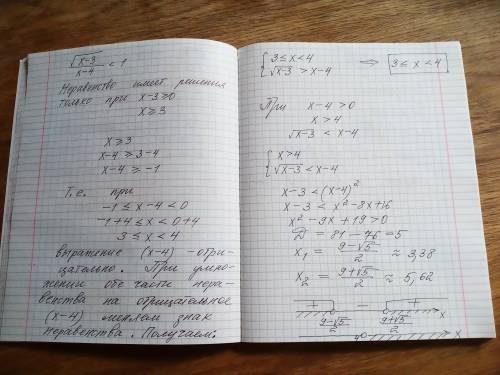 √(x-3) / (x-4) < 1
Неравенство имеет решения
только при x-3≥0
x≥3
x≥3
x-4≥3-4
x-4≥-1
Т.е. при
-1≤x-4<0
-1+4≤x<0+4
3≤x<4
выражение (x-4) - отри-
цательно. При умно-
жении обе части нера-
венства на отрицательное
(x-4) меняем знак
неравенства. Получаем:
{ 3≤x<4
√(x-3) > x-4 ⇒ 3≤x<4
При x-4>0
x>4
√(x-3) < x-4
{ x>4
√(x-3) < x-4
x-3<(x-4)²
x-3<x²-8x+16
x²-9x+19>0
D = 81-76=5
x₁ = (9-√5)/2 ≈ 3,38
x₂ = (9+√5)/2 ≈ 5,62
+ - +
(9-√5)/2 (9+√5)/2 x
4 x